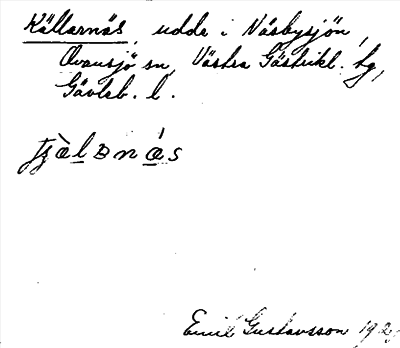 Källarnäs, udde i Näsbysjön,
Ovansjö sn, Västra Gästrikl. tg,
Gävleb. l.
Emil Gustavsson 192